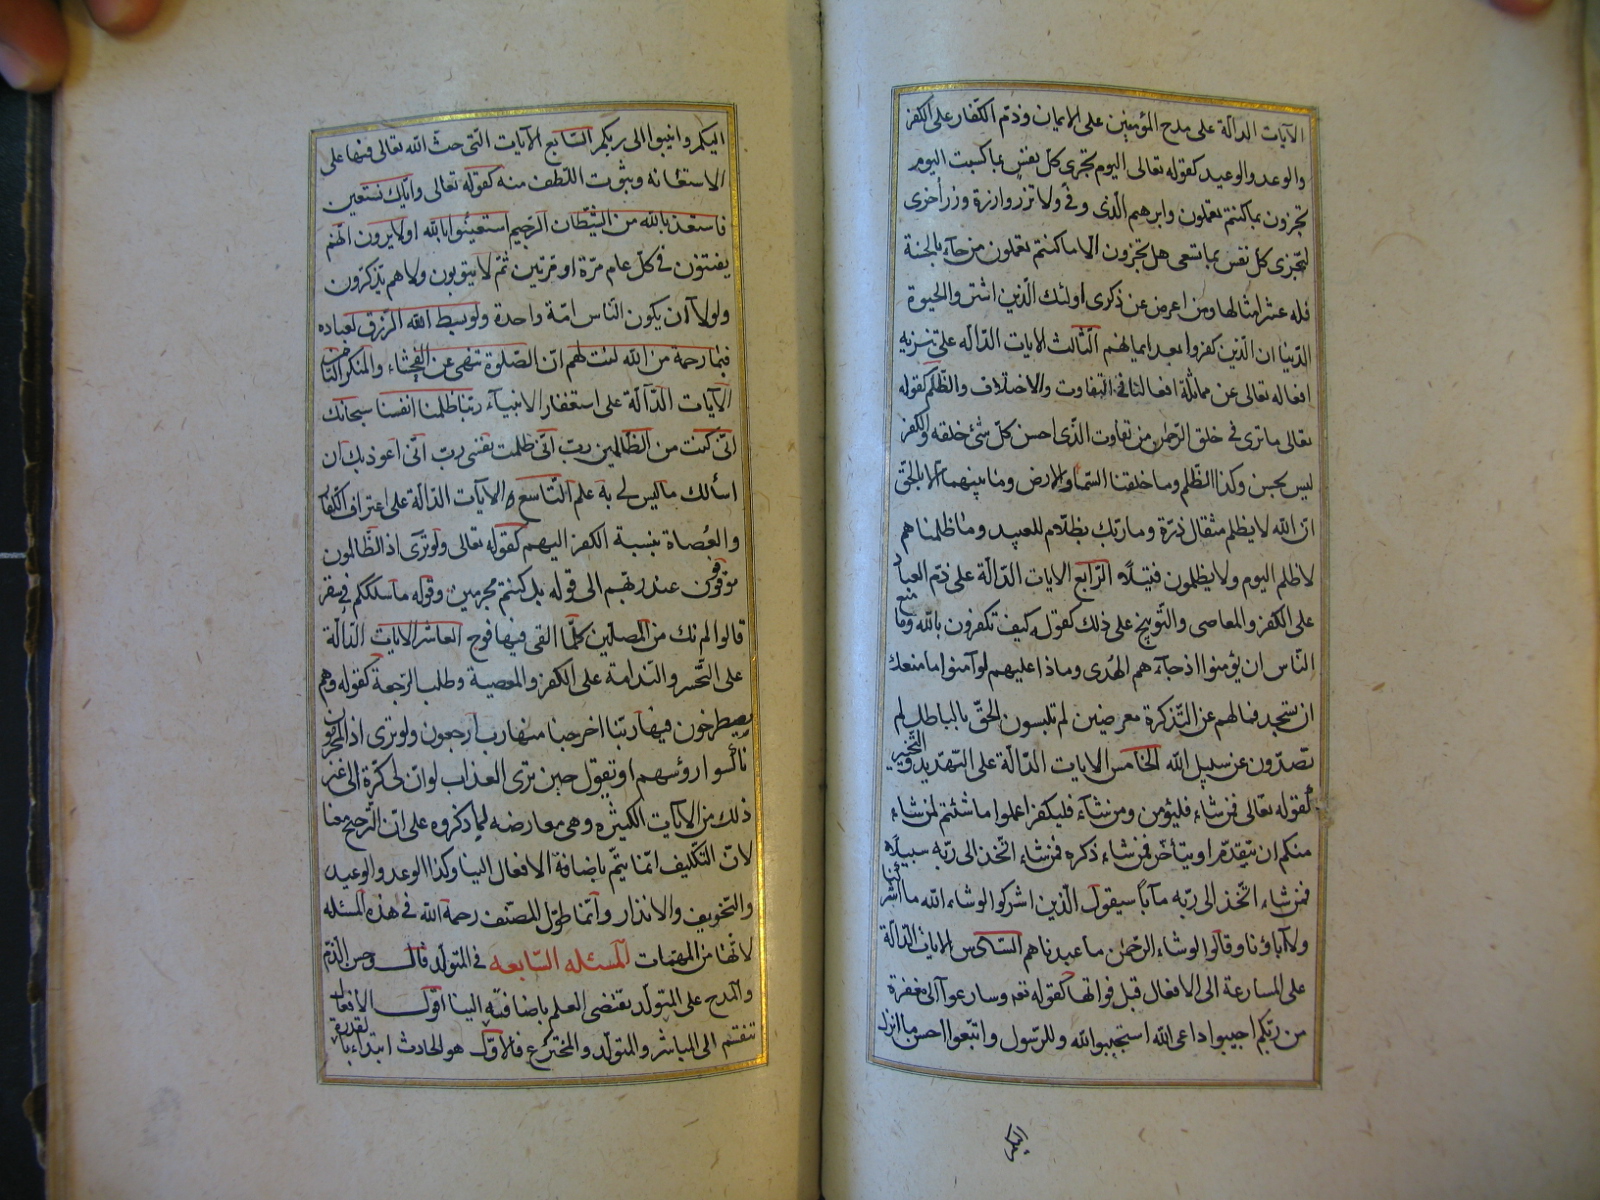 الآيات الدالة على مدح المؤمنين على الايمان وذم الكفار على الكفر
والوعد والوعيد كقوله تعالى اليوم تجزى كل نفس بما كسبت اليوم
تجزون بما كنتم تعملون وابرهيم الذى وفى ولا تزر وازرة وزر أخرى
لتجزى كل نفس بما تسعى هل تجزون الا ما كنتم تعملون من جآء بالحسنة
فله عشر امثالها ومن اعرض عن ذكرى اولئك الذين اشتروا الحيوة
الدنيا ان الذين كفروا بعد ايمانهم الثالث الايات الدالة على تنزيه
افعاله تعالى عن مماثلة افعالنا فى التفاوت والاختلاف والظلم كقوله
تعالى ما ترى فى خلق الرحمن من تفاوت الذى احسن كل شئ خلقه والكفر
ليس بحسن وكذا الظلم وما خلقنا السماء والارض وما بينهما الا بالحق
ان الله لا يظلم مثقال ذرة وما ربك بظلام للعبيد وما ظلمناهم
لا ظلم اليوم ولا يظلمون فتيلا الرابع الايات الدالة على ذم العباد
على الكفر والمعاصى والتوبيخ على ذلك كقوله كيف تكفرون بالله وما منع
الناس ان يؤمنوا اذ جآءهم الهدى وماذا عليهم لو آمنوا ما منعك
ان تسجد فما لهم عن التذكرة معرضين لم تلبسون الحق بالباطل لم
تصدون عن سبيل الله الخامس الايات الدالة على التهديد والتخيير
كقوله تعالى فمن شاء فليؤمن ومن شآء فليكفر اعملوا ما شئتم لمن شاء
منكم ان يتقدم او يتأخر فمن شاء ذكره فمن شاء اتخذ الى ربه سبيلا
فمن شاء اتخذ الى ربه مآبا سيقول الذين اشركوا لو شاء الله ما اشركنا
ولا آباؤنا وقالوا لو شاء الرحمن ما عبدناهم السادس الايات الدالة
على المسارعة الى الافعال قبل فواتها كقوله تعم وسارعوا الى مغفرة
من ربكم اجيبوا داعى الله استجيبوا لله وللرسول واتبعوا احسن ما انزل
اليكم وانيبوا الى ربكم السابع الآيات التى حث الله تعالى فيها على
الاستعانة وثبوت اللطف منه كقوله تعالى واياك نستعين
فاستعذ بالله من الشيطان الرجيم استعينوا بالله اولا يرون انهم
يفتنون فى كل عام مرة او مرتين ثم لا يتوبون ولا هم يذكرون
ولولا آن يكون الناس امة واحدة ولو بسط الله الرزق لعباده
فبما رحمة من الله لنت لهم ان الصلوة تنهى عن الفحشاء والمنكر الثامن
الآيات الدالة على استغفار الانبيآء ربنا ظلمنا انفسنا سبحانك
انى كنت من الظالمين رب انى ظلمت نفسى رب انى اعوذ بك ان
اسألك ما ليس لى به علم التاسع الآيات الدالة على اعتراف الكفار
والعصاة بنسبة الكفر اليهم كقوله تعالى ولو ترى اذ الظالمون
موقوفون عند ربهم الى قوله بل كنتم مجرمين وقوله ما سلككم فى سقر
قالوا لم نك من المصلين كلما القى فيها فوج العاشر الايات الدالة
على التحسر والندامة على الكفر والمعصية وطلب الرجعة كقوله وهم
يصطرخون فيها ربنا اخرجنا منها رب ارجعون ولو ترى اذ المجرمون
ناكسوا رؤسهم او تقول حين ترى العذاب لو ان لى كرة الى غير
ذلك من الآيات الكثيرة وهى معارضه لما ذكروه على ان الترجيح معنا
لان التكليف انما يتم باضافة الافعال الينا وكذا الوعد والوعيد
والتخويف والانذار وانما طول المصنف رحمة الله فى هذه المسئله
لانها من المهمات المسئله السابعه فى المتولد قال وحسن الذم
والمدح على المتولد يقتضى العلم باضافته الينا اقول الافعال
تنقسم الى المباشر والمتولد والمخترع فالاول هو الحادث ابتداء بالقدرة